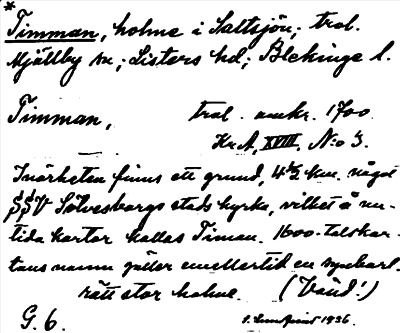 *
Timman, holme i Saltsjön; trol.
Mjällby sn; Listers hd; Blekinge l.
Timman, trol. omkr. 1700.
Kr. A, XVIII, N:o 3.
I närheten finns ett grund, 4 1/2 km. något
SSV Sölvesborgs stads kyrka, vilket å nu-
tida kartor kallas Timan. 1600-talskar-
tans namn gäller emellertid en synbarl.
rätt stor holme. (Vänd!)
G. 6. 1936.